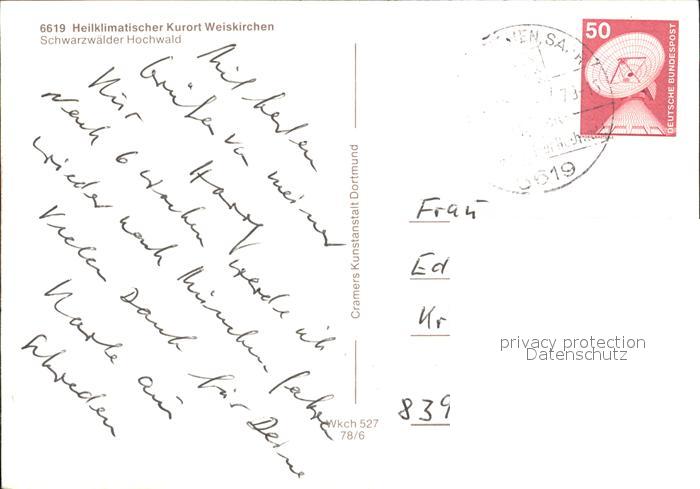 6619 Heilklimatischer Kurort Weiskirchen
Schwarzwälder Hochwald
Mit besten
Grüßen von meiner
Kur
Nach 6 Wochen werde ich
wieder nach München fahren
Vielen Dank für Deine
Karte aus
Schweden
Cramers Kunstanstalt Dortmund
Wkch 527
78/6
50
DEUTSCHE BUNDESPOST
6619
Frau
Ed
Kr
839
privacy protection
Datenschutz